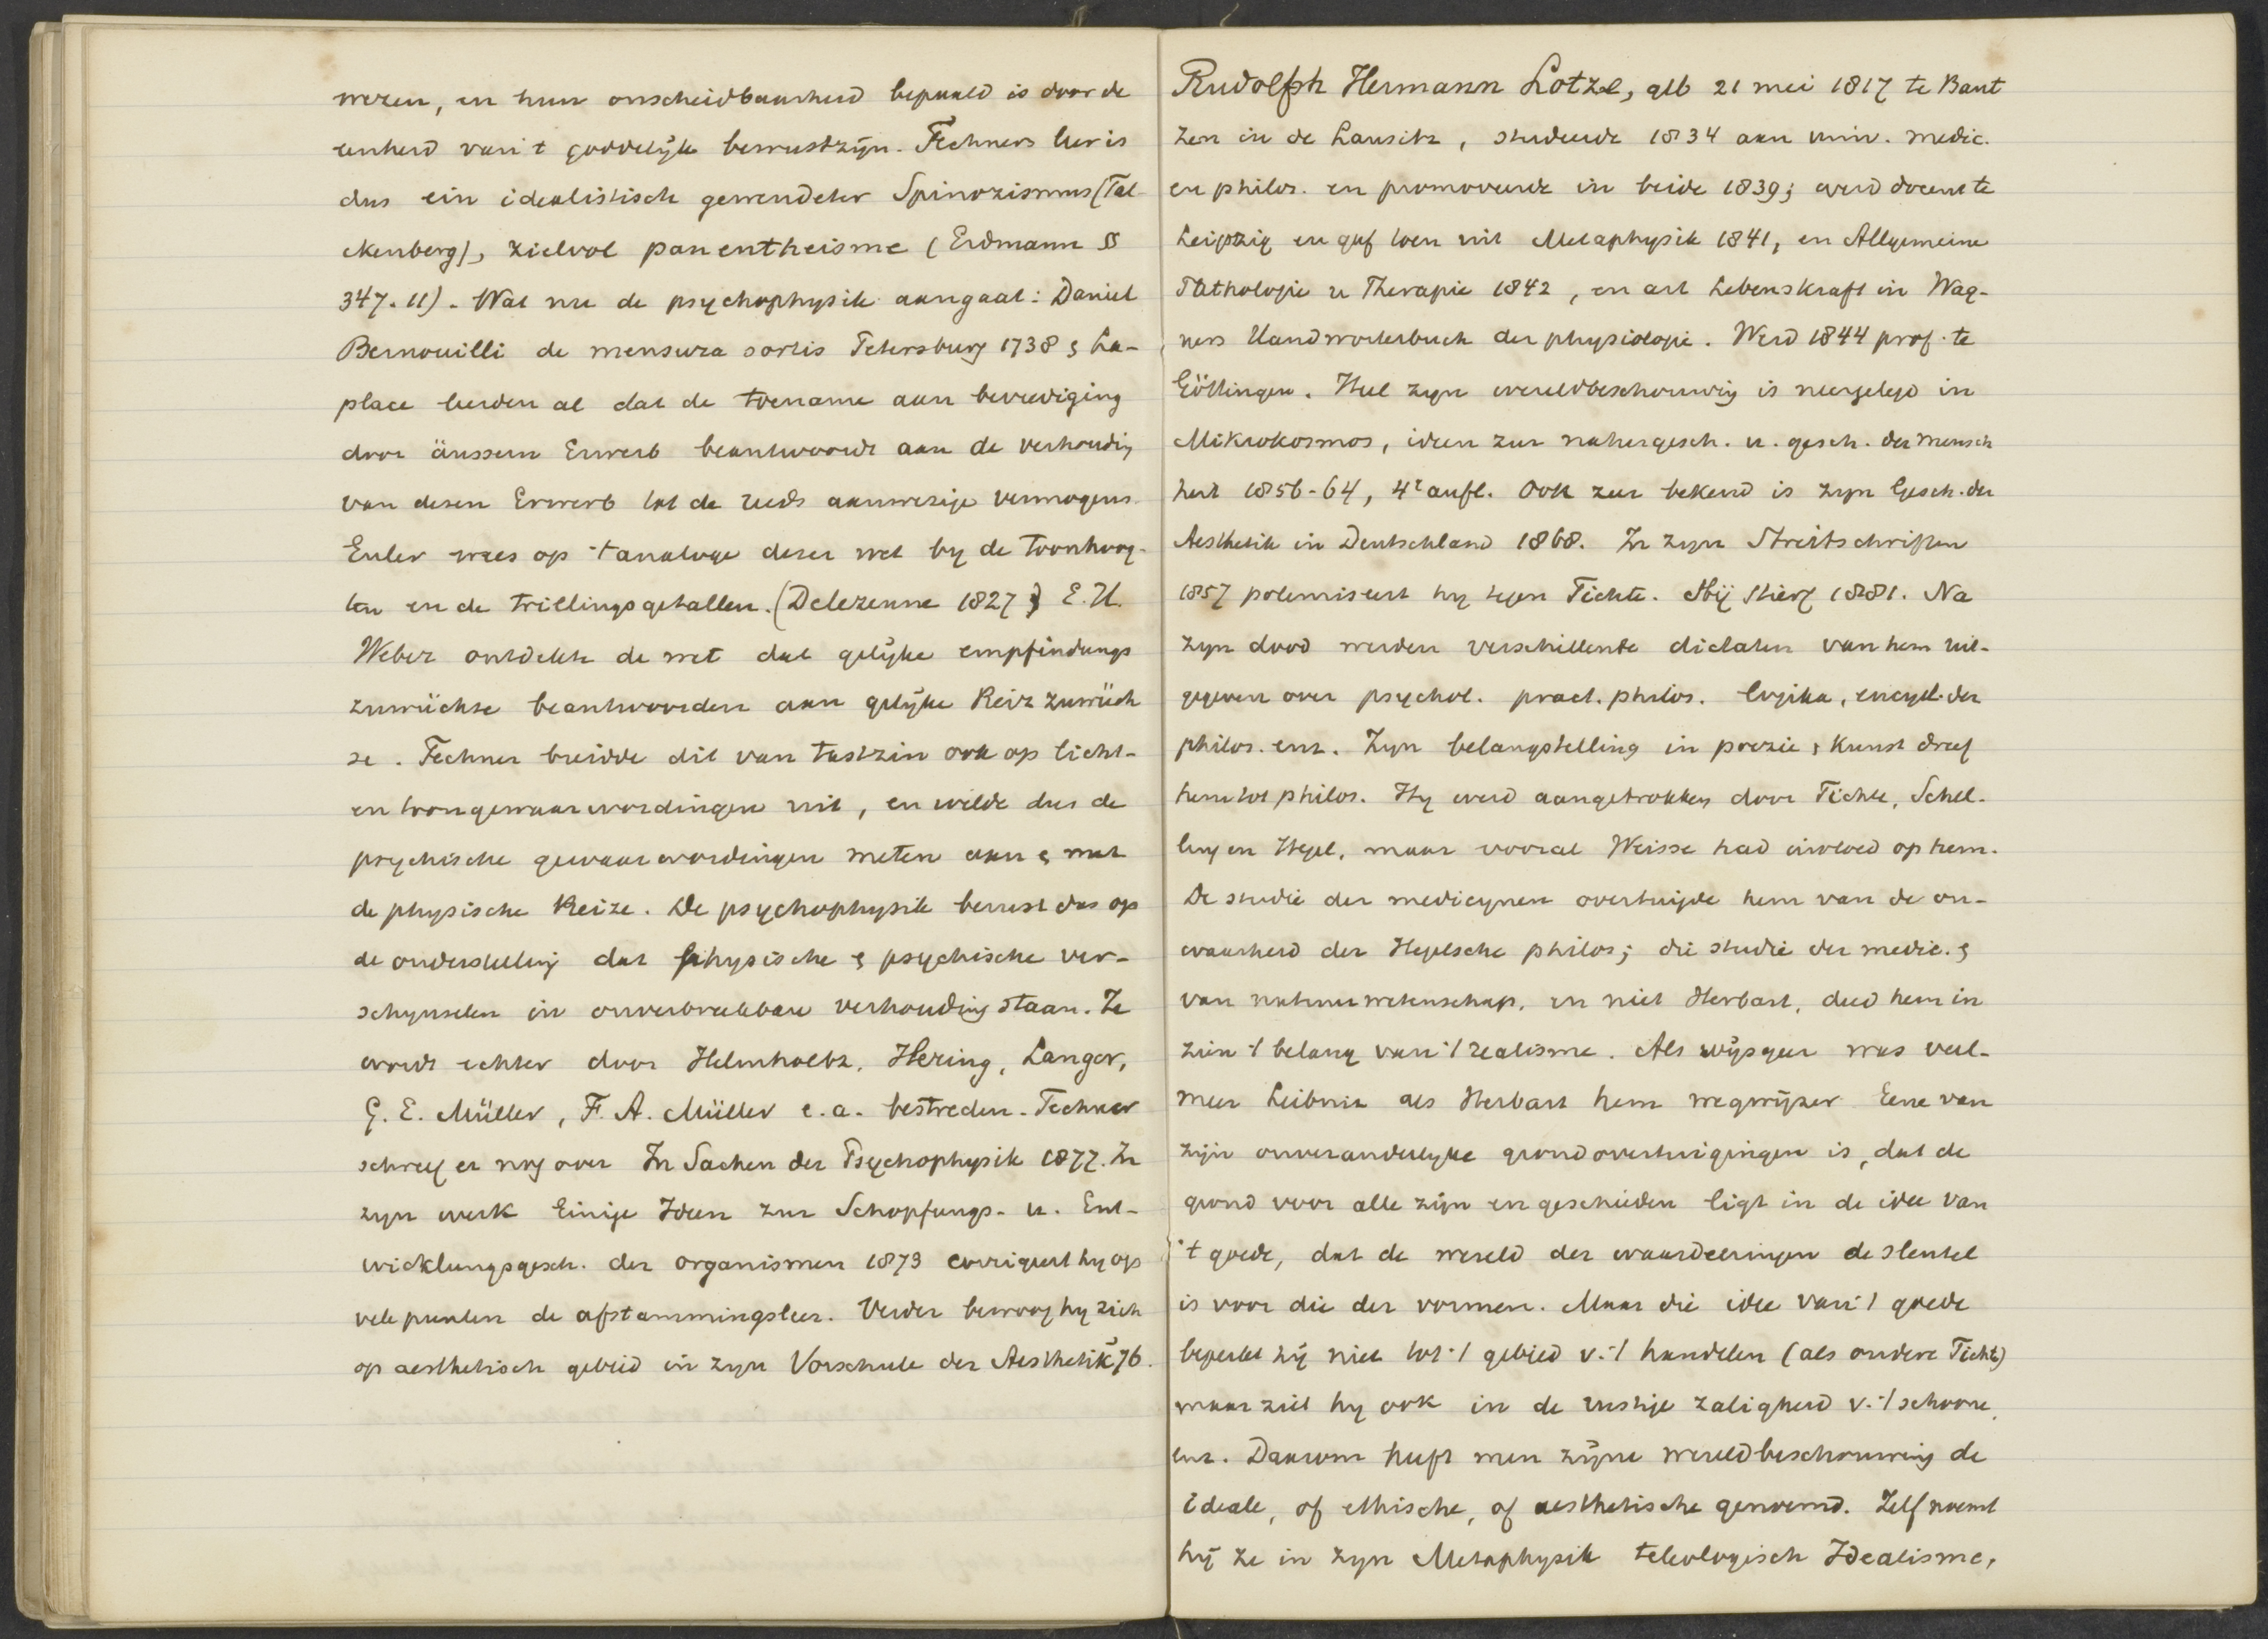 wezen, en hun onscheidbaarheid bepaald is door de
eenheid van 't goddelijk bewustzijn. Fechners leer is
dus ein idealistisch gewendeter Spinozismus (Fal-
ckenberg), zielvol panentheisme (Erdmann §
347.11). Wat nu de psychophysik aangaat: Daniel
Bernouilli de mensura sortis Petersburg 1738 & La-
place leerden al dat de toename aan bevrediging
door äussern Erwerb beantwoordt aan de verhoudig
van desen Erwerb tot de reeds aanwezige vermogens.
Euler wees op 't analoge dezer wet by de toonhoog-
ten en de trillingsgetallen. (Delezenne 1827) E.H.
Weber ontdekte de wet dat gelijke empfindungs
zuwüchse beantwoorden aan gelijke Reiz zuwüch
se. Fechner breidde dit van tastzin ook op licht-
en toongewaarwordingen uit, en wilde dus de
psychische gewaarwordingen meten aan & met
de physische Reize. De psychophysik berust dus op
de onderstelling dat physische & psychische ver-
schynselen in onverbreekbare verhouding staan. Ze
wordt echter door Helmholtz, Hering, Langer,
G. E. Müller, F. A. Müller e.a. bestreden. Fechner
schreef er nog over In Sachen der Psychophysik 1877. In
zyn werk Einige Ideen zur Schopfungs- u. Ent-
wicklungsgesch. der organismen 1873 corrigeert hy op
vele punten de afstammingsleer. Verder bewoog hy zich
op aesthetisch gebied in zyn Vorschule der Aesthetik 76.
Rudolph Hermann Lotze, geb 21 mei 1817 te Baut
zen in de Lausitz, studeerde 1834 aan univ. medic.
en philos. en promoveerde in beide 1839; werd docent te
Leipzig en gaf toen uit Metaphysik 1841, en Allgemeine
Pathologie u Therapie 1842, en art Lebenskraft in Wag-
ners Handworterbuch der physiologie. Werd 1844 prof. te
Göttingen. Heel zyn wereldbeschouwig is neergelegd in
Mikrokosmos, ideen zur naturgesch. u. gesch. der mensch
heit 1856-64, 4e aufl. Ook zeer bekend is zyn Gesch. der
Aesthetik in Deutschland 1868. In zyn Streitschriften
1857 polemiseert hy tegen Fichte. Hij stierf 1881. Na
zyn dood werden verschillende dictaten van hem uit-
gegeven over psychol. pract. philos. logika, encycl. der
philos. enz. Zyn belangstelling in poezie & kunst dreef
hem tot philos. Hy werd aangetrokken door Fichte, Schel-
ling en Hegel, maar vooral Weisse had invloed op hem.
De studie der medicynen overtuigde hem van de on-
waarheid der Hegelsche philos; die studie der medic. &
van natuurwetenschap, en niet Herbart, deed hem in
zien 't belang van 't realisme. Als wijsgeer was veel-
meer Leibniz als Herbart hem wegwijzer. Eene van
zijn onveranderlyke grondovertuigingen is, dat de
grond voor alle zijn en geschieden ligt in de idee van
't goede, dat de wereld der waardeeringen de sleutel
is voor die der vormen. Maar die idee van 't goede
beperkt hij niet tot 't gebied v. 't handelen (als oudere Fichte)
maar ziet hy ook in de rustige zaligheid v. 't schoone,
enz. Daarom heeft men zijne wereldbeschouwing de
ideale, of ethische, of aesthetische genoemd. Zelf noemt
hij ze in zyn Metaphysik teleologisch Idealisme,